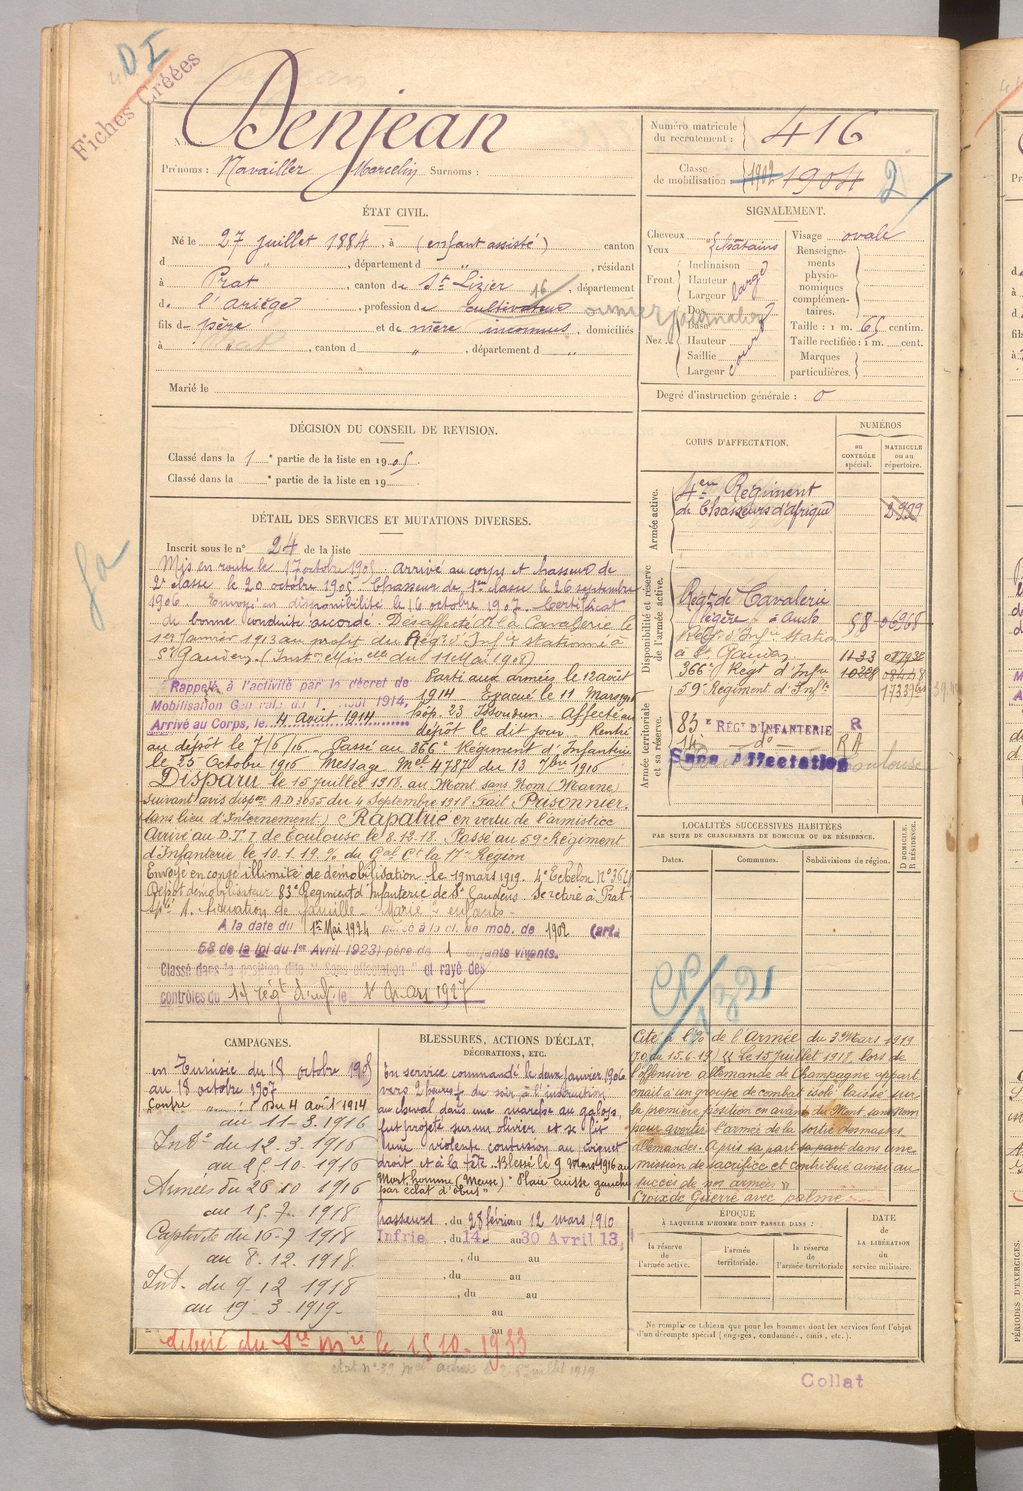 DI
Fiches Créées
Denjean
Prénoms : Navailler Marcelin Surnoms :
Numéro matricule du recrutement : 416
Classe de mobilisation 1902 1904 2
ÉTAT CIVIL.
Né le 27 juillet 1884, à (enfant assisté) canton
d " , département d " , résidant
à Prat , canton de St Lizier 16 , département
de l'Ariège , profession de cultivateur
ouvrier journalier
fils de père et de mère inconnus , domiciliés
à " , canton d " , département d "
Marié le
SIGNALEMENT.
Cheveux
Yeux châtains
Front Inclinaison
Hauteur
Largeur large
Nez Dos
Base
Hauteur
Saillie
Largeur court
Visage ovale
Renseignements physionomiques complémentaires.
Taille : 1 m. 65 centim.
Taille rectifiée : 1 m. cent.
Marques particulières.
Degré d'instruction générale : 0
DÉCISION DU CONSEIL DE REVISION.
Classé dans la 1e partie de la liste en 1905
Classé dans la e partie de la liste en 19
DÉTAIL DES SERVICES ET MUTATIONS DIVERSES.
Inscrit sous le n° 24 de la liste
Mis en route le 17 octobre 1905. Arrivé au corps et chasseur de
2e classe le 20 octobre 1905. Chasseur de 1ère classe le 26 septembre
1906. Envoyé en disponibilité le 16 octobre 1907. Certificat
de bonne conduite accordé. Désaffecté de la Cavalerie le
1er Janvier 1913 au profit du Régt d'Infie stationné à
St Gaudens (Inston Minelle du 11 Mai 1908)
Rappelé à l'activité par le décret de
Mobilisation Générale du 1 Août 1914,
Arrivé au Corps, le 4 Août 1914
Parti aux armées le 12 août
1914. Evacué le 11 Mars 1916
hôp. 23 Issoudun. Affecté au
dépôt le dit jour. Rentré
au dépôt le 7/6/16. Passé au 366e Régiment d'Infanterie
le 25 Octobre 1916 Message Mel 4787 du 13 7bre 1916
Disparu le 15 Juillet 1918 au Mont sans Nom (Marne)
suivant avis dispon A.D 3655 du 4 Septembre 1918 Fait Prisonnier
(sans lieu d'Internement) Rapatrié en vertu de l'armistice
Arrivé au D.T.I. de Toulouse le 8.12.18. Passé au 59e Régiment
d'Infanterie le 10.1.19. % du Gal Ct la 17e Région
Envoyé en congé illimité de démobilisation le 19 mars 1919. 4e Echelon N° 3628
Dépôt démobilisateur 83e Régiment d'Infanterie de St Gaudens Se retire à Prat
Situation de famille - Marié 2 enfants -
A la date du 1er Mai 1924 passé à la cl. de mob. de 1902 (art.
58 de la loi du 1er Avril 1923) père de 1 enfants vivants.
Classé dans la position dite "Sans affectation" et rayé des
contrôles du 14 régt d'inf. le 1 Mars 1927
CORPS D'AFFECTATION.
NUMÉROS
au CONTRÔLE spécial.
MATRICULE ou au répertoire.
Armée active.
4e Régiment
de Chasseurs d'Afrique 2999
Disponibilité et réserve de l'armée active.
Régt de Cavalerie
légère à Auch 58 06968
Régt d'Infie statio
à St Gaudens 1133
366e Régt d'Infie 10228
59e Régiment d'Infie
Armée territoriale et sa réserve.
83e RÉGt D'INFANTERIE R
14 do RA
Sans Affectation
LOCALITÉS SUCCESSIVES HABITÉES
PAR SUITE DE CHANGEMENTS DE DOMICILE OU DE RÉSIDENCE.
Dates. Communes. Subdivisions de région.
D DOMICILE. R RÉSIDENCE.
CAMPAGNES.
en Tunisie du 18 octobre 1905
au 18 octobre 1907
Contre du 4 août 1914
au 11-3-1916
Intre du 12.3-1916
au 25.10-1916
Armées du 26 10 1916
au 15-7-1918
Captivité du 16-7 1918
au 8.12.1918.
Int. du 9.12 1918
au 19-3-1919-
BLESSURES, ACTIONS D'ÉCLAT,
DÉCORATIONS, ETC.
En service commandé le deux janvier 1906
vers 2 heures du soir à l'instruction
au cheval dans une marche au galop,
fut projeté sur un olivier et se fit
une violente contusion au poignet
droit et à la tête. Blessé le 9 Mars 1916 au
Mort homme (Meuse) "Plaie cuisse gauche
par éclat d'obus"
Chasseurs . du 28 février au 12 mars 1910
Infrie . du 14 au 30 Avril 13,
, du au
, du au
, du au
au
au
Cité à l'% de l'Armée du 3 Mars 1919
(J.O. du 15.6.19) "Le 15 Juillet 1918, lors de
l'offensive allemande de Champagne appart
enait à un groupe de combat isolé laissé sur
la première position en avant du Mont sans nom
pour avertir l'armée de la sortie des masses
allemandes. A pris sa part sa part dans une
mission de sacrifice et contribué ainsi au
succès de nos armées"
Croix de Guerre avec palme
ÉPOQUE
À LAQUELLE L'HOMME DOIT PASSER DANS :
la réserve de l'armée active.
l'armée territoriale.
la réserve de l'armée territoriale
DATE de LA LIBÉRATION du service militaire.
Ne remplir ce tableau que pour les hommes dont les services font l'objet
d'un décompte spécial (engagés, condamnés, omis, etc.).
libéré du Sce Mre le 15 10-1933
Collat
PÉRIODES D'EXERCICES.